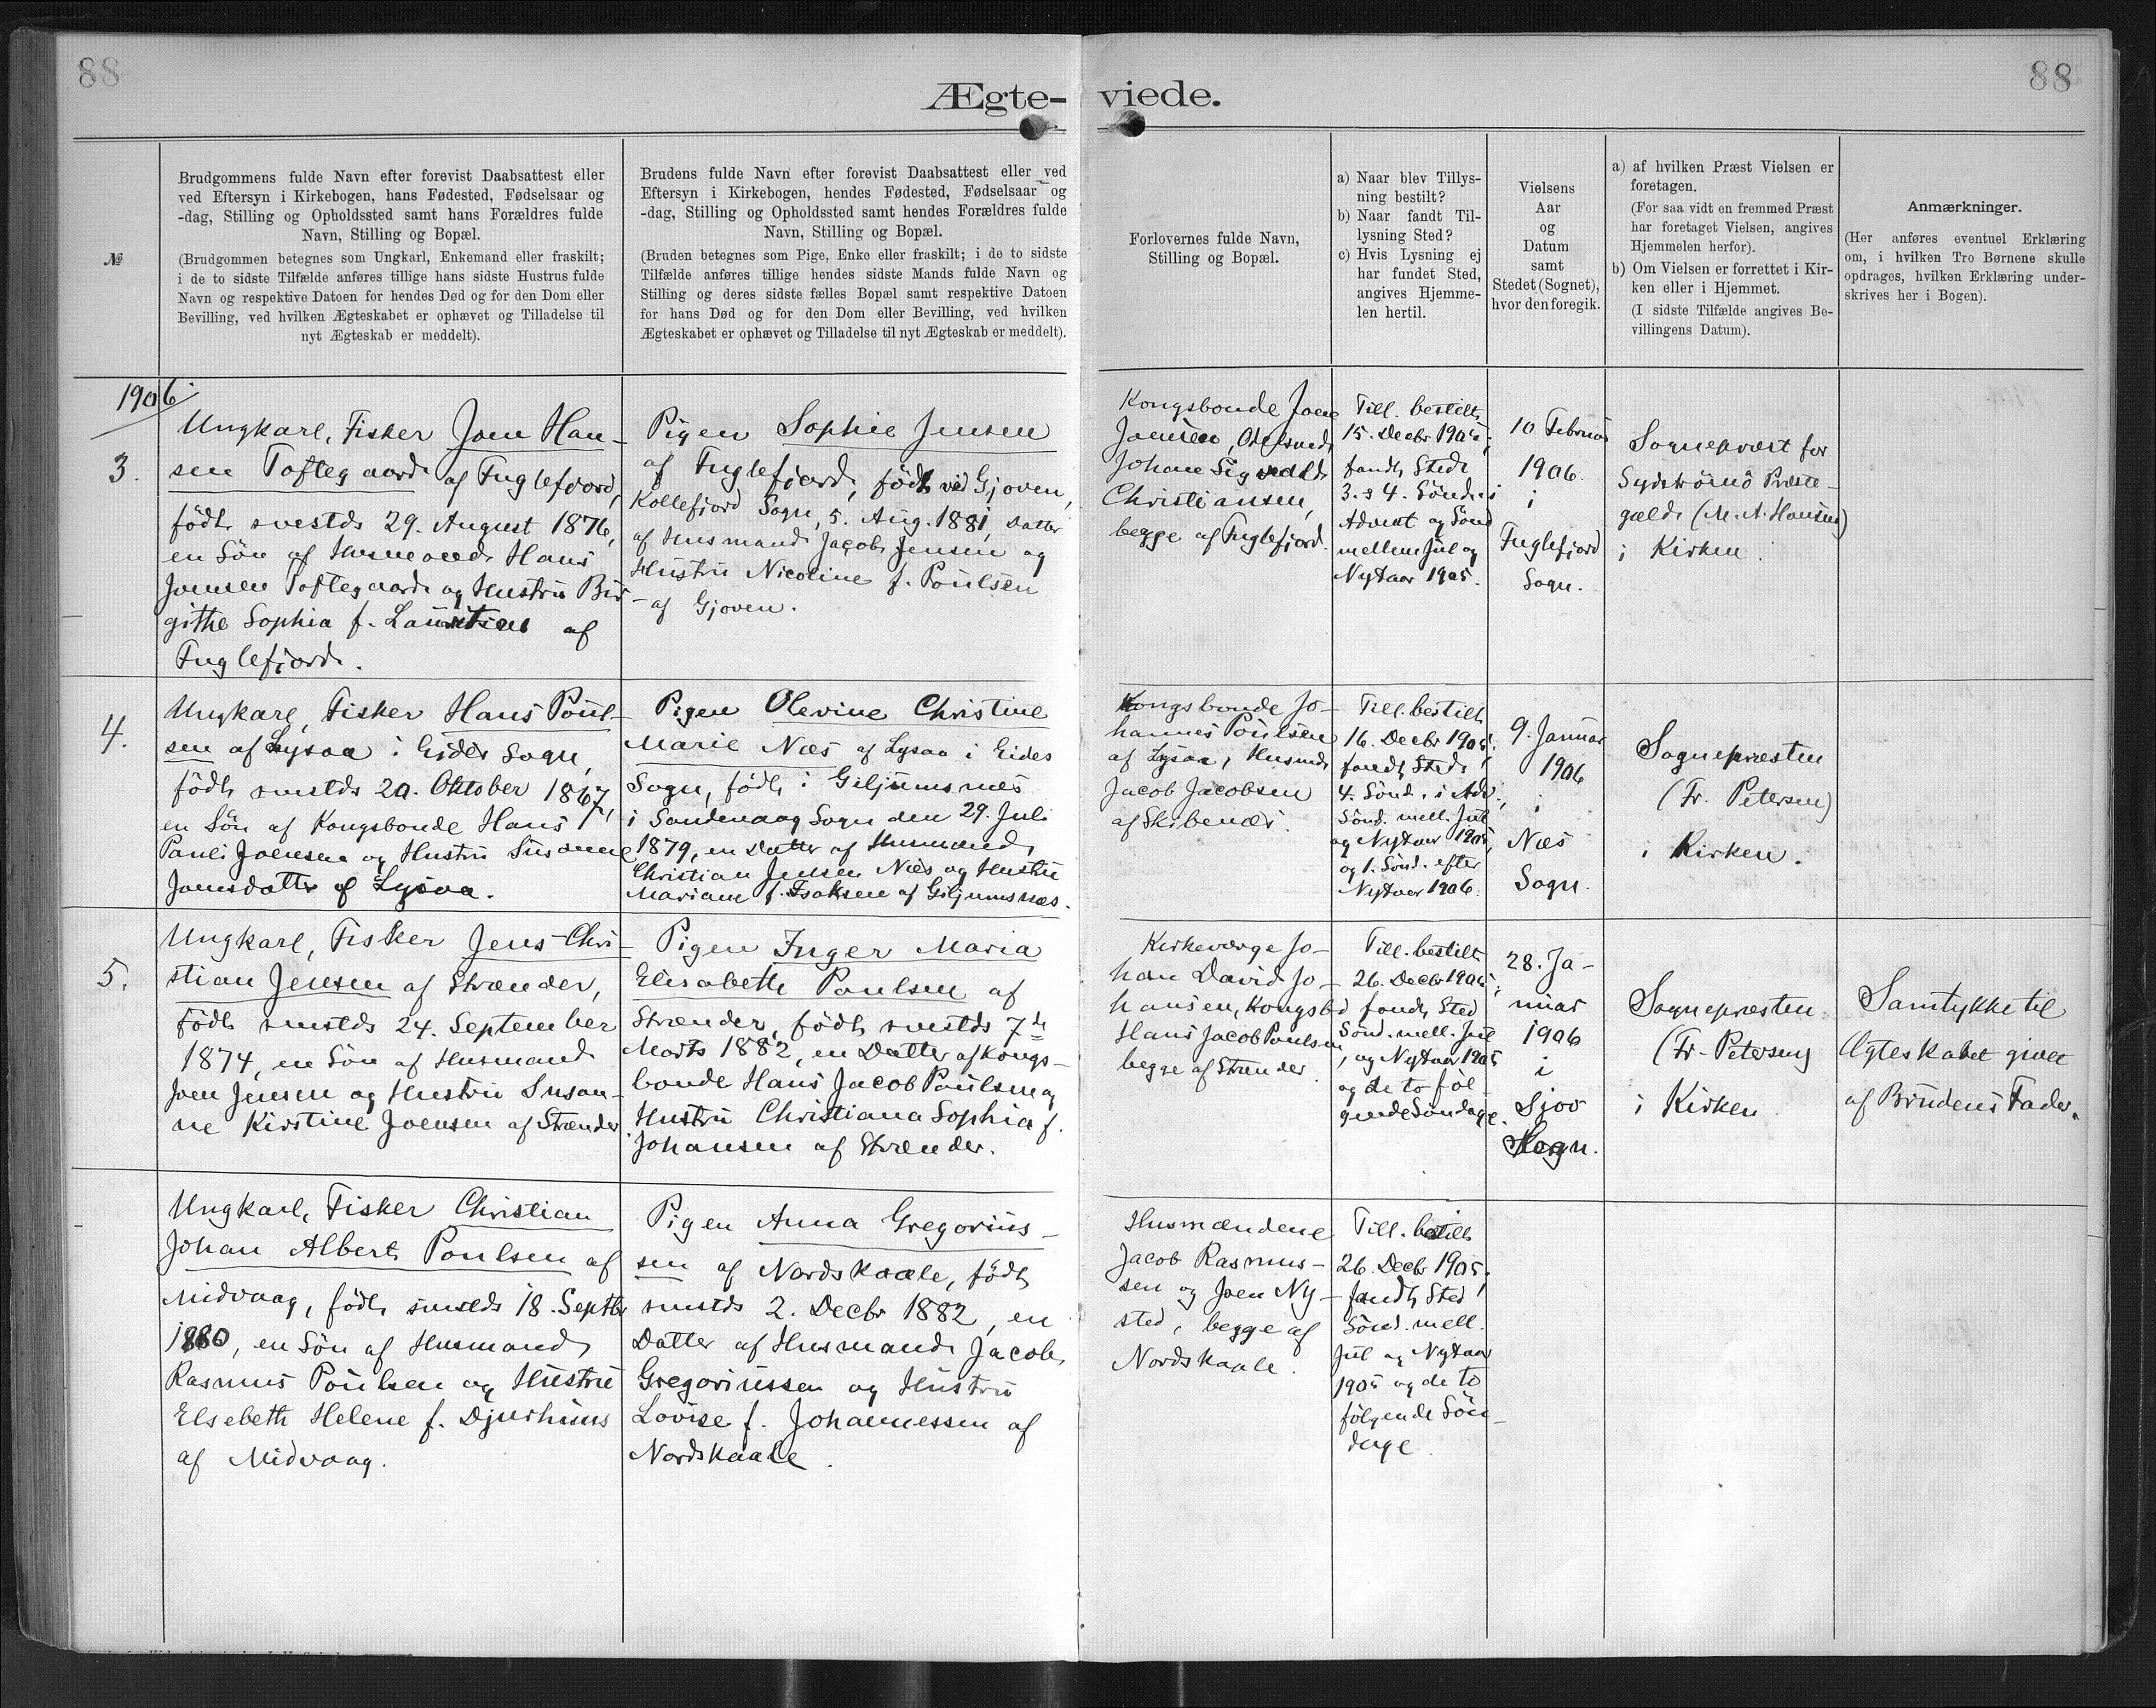 88
Ægte-
viede.
88
№
Brudgommens fulde Navn efter forevist Daabsattest eller
ved Eftersyn i Kirkebogen, hans Fødested, Fødselsaar og
-dag, Stilling og Opholdssted samt hans Forældres fulde
Navn, Stilling og Bopæl.
(Brudgommen betegnes som Ungkarl, Enkemand eller fraskilt;
i de to sidste Tilfælde anføres tillige hans sidste Hustrus fulde
Navn og respektive Datoen for hendes Død og for den Dom eller
Bevilling, ved hvilken Ægteskabet er ophævet og Tilladelse til
nyt Ægteskab er meddelt).
Brudens fulde Navn efter forevist Daabsattest eller ved
Eftersyn i Kirkebogen, hendes Fødested, Fødselsaar og
-dag, Stilling og Opholdssted samt hendes Forældres fulde
Navn, Stilling og Bopæl.
(Bruden betegnes som Pige, Enke eller fraskilt; i de to sidste
Tilfælde anføres tillige hendes sidste Mands fulde Navn og
Stilling og deres sidste fælles Bopæl samt respektive Datoen
for hans Død og for den Dom eller Bevilling, ved hvilken
Ægteskabet er ophævet og Tilladelse til nyt Ægteskab er meddelt).
Forlovernes fulde Navn,
Stilling og Bopæl.
a) Naar blev Tillys-
ning bestilt?
b) Naar fandt Til-
lysning Sted?
c) Hvis Lysning ej
har fundet Sted,
angives Hjemme-
len hertil.
Vielsens
Aar
og
Datum
samt
Stedet (Sognet),
hvor den foregik.
a) af hvilken Præst Vielsen er
foretagen.
(For saa vidt en fremmed Præst
har foretaget Vielsen, angives
Hjemmelen herfor).
b) Om Vielsen er forrettet i Kir-
ken eller i Hjemmet.
(I sidste Tilfælde angives Be-
villingens Datum).
Anmærkninger.
(Her anføres eventuel Erklæring
om, i hvilken Tro Børnene skulle
opdrages, hvilken Erklæring under-
skrives her i Bogen).
1906
3.
Ungkarl, Fisker Joen Han-
sen Toftegaard af Fuglefjord,
født svestds 29. August 1876,
en Søn af Husmand Hans
Joensen Toftegaard og Hustru Bir-
githe Sophia f. af
Fuglefjord.
Pigen Sophie Jensen
af Fuglefjord, født ved Gjoven,
Kollefjord Sogn, 5. Aug. 1881, Datter
af Husmand Jacob Jensen og
Hustru Nicoline f. Poulsen
- af Gjoven.
Kongsbonde Joen
Joensen, Odelsmd
Johan Sigvald
Christiansen,
begge af Fuglefjord.
Till. bestilt
15. Decbr 1905,
fandt Sted
3. & 4. Sønd. i
Advent og Sønd
mellem Jul og
Nytaar 1905.
10 Februar
1906.
i
Fuglefjord
Sogn.
Sognepræst for
Sydstrømø Præste-
gæld (M. A. Hansen)
i Kirken.
4.
Ungkarl, Fisker Hans Poul-
sen af Lysaa i Eides Sogn,
født smstds 20. Oktober 1867,
en Søn af Kongsbonde Hans
Pauli Joensen og Hustru Susanne
Joensdatter af Lysaa.
Pigen Olevine Christine
Marie Næs af Lysaa i Eides
Sogn, født i Giljumsnæs
i Sandevaag Sogn den 29. Juli
1879, en Datter af Husmand
Christian Jensen Næs og Hustru
Mariane f. Isaksen af Giljumsnæs.
Kongsbonde Jo-
hannes Poulsen
af Lysaa, Husmd
Jacob Jacobsen
af Skibenæs.
Till. bestilt
16. Decbr 1905,
fandt Sted
4. Sønd. i Adv.,
Sønd. mell. Jul
og Nytaar 1905,
og 1. Sønd. efter
Nytaar 1906.
9. Januar
1906
i
Næs
Sogn.
Sognepræsten
(Fr. Petersen)
i Kirken.
5.
Ungkarl, Fisker Jens Chri-
stian Jensen af Strænder,
født smstds 24. September
1874, en Søn af Husmand
Joen Jensen og Hustru Susan-
ne Kirstine Joensen af Strænder
Pigen Inger Maria
Elisabeth Poulsen af
Strænder, født smstds 7de
Marts 1882, en Datter af Kongs-
bonde Hans Jacob Poulsen og
Hustru Christiana Sophia f.
Johansen af Strænder.
Kirkeværge Jo-
han David Jo-
hansen, Kongsbd
Hans Jacob Poulsen
begge af Strænder.
Till. bestilt
26. Decbr 1905,
fandt Sted
Sønd. mell. Jul
og Nytaar 1905
og de to føl
gende Søndage.
28. Ja-
nuar
1906
i
Sjov
Sogn.
Sognepræsten
(Fr. Petersen)
i Kirken
Samtykke til
Ægteskabet givet
af Brudens Fader.
Ungkarl, Fisker Christian
Johan Albert Poulsen af
Midvaag, født smstds 18. Septbr
1880, en Søn af Husmand
Rasmus Poulsen og Hustru
Elsebeth Helene f. Djurhuus
af Midvaag.
Pigen Anna Gregorius-
sen af Nordskaale, født
smstds 2. Decbr 1882, en
Datter af Husmand Jacob
Gregoriussen og Hustru
Lovise f. Johannessen af
Nordskaale.
Husmændene
Jacob Rasmus-
sen og Joen Ny-
sted, begge af
Nordskaale.
Till. bestilt
26. Decbr 1905,
fandt Sted
Sønd. mell.
Jul og Nytaar
1905 og de to
følgende Søn-
dage.